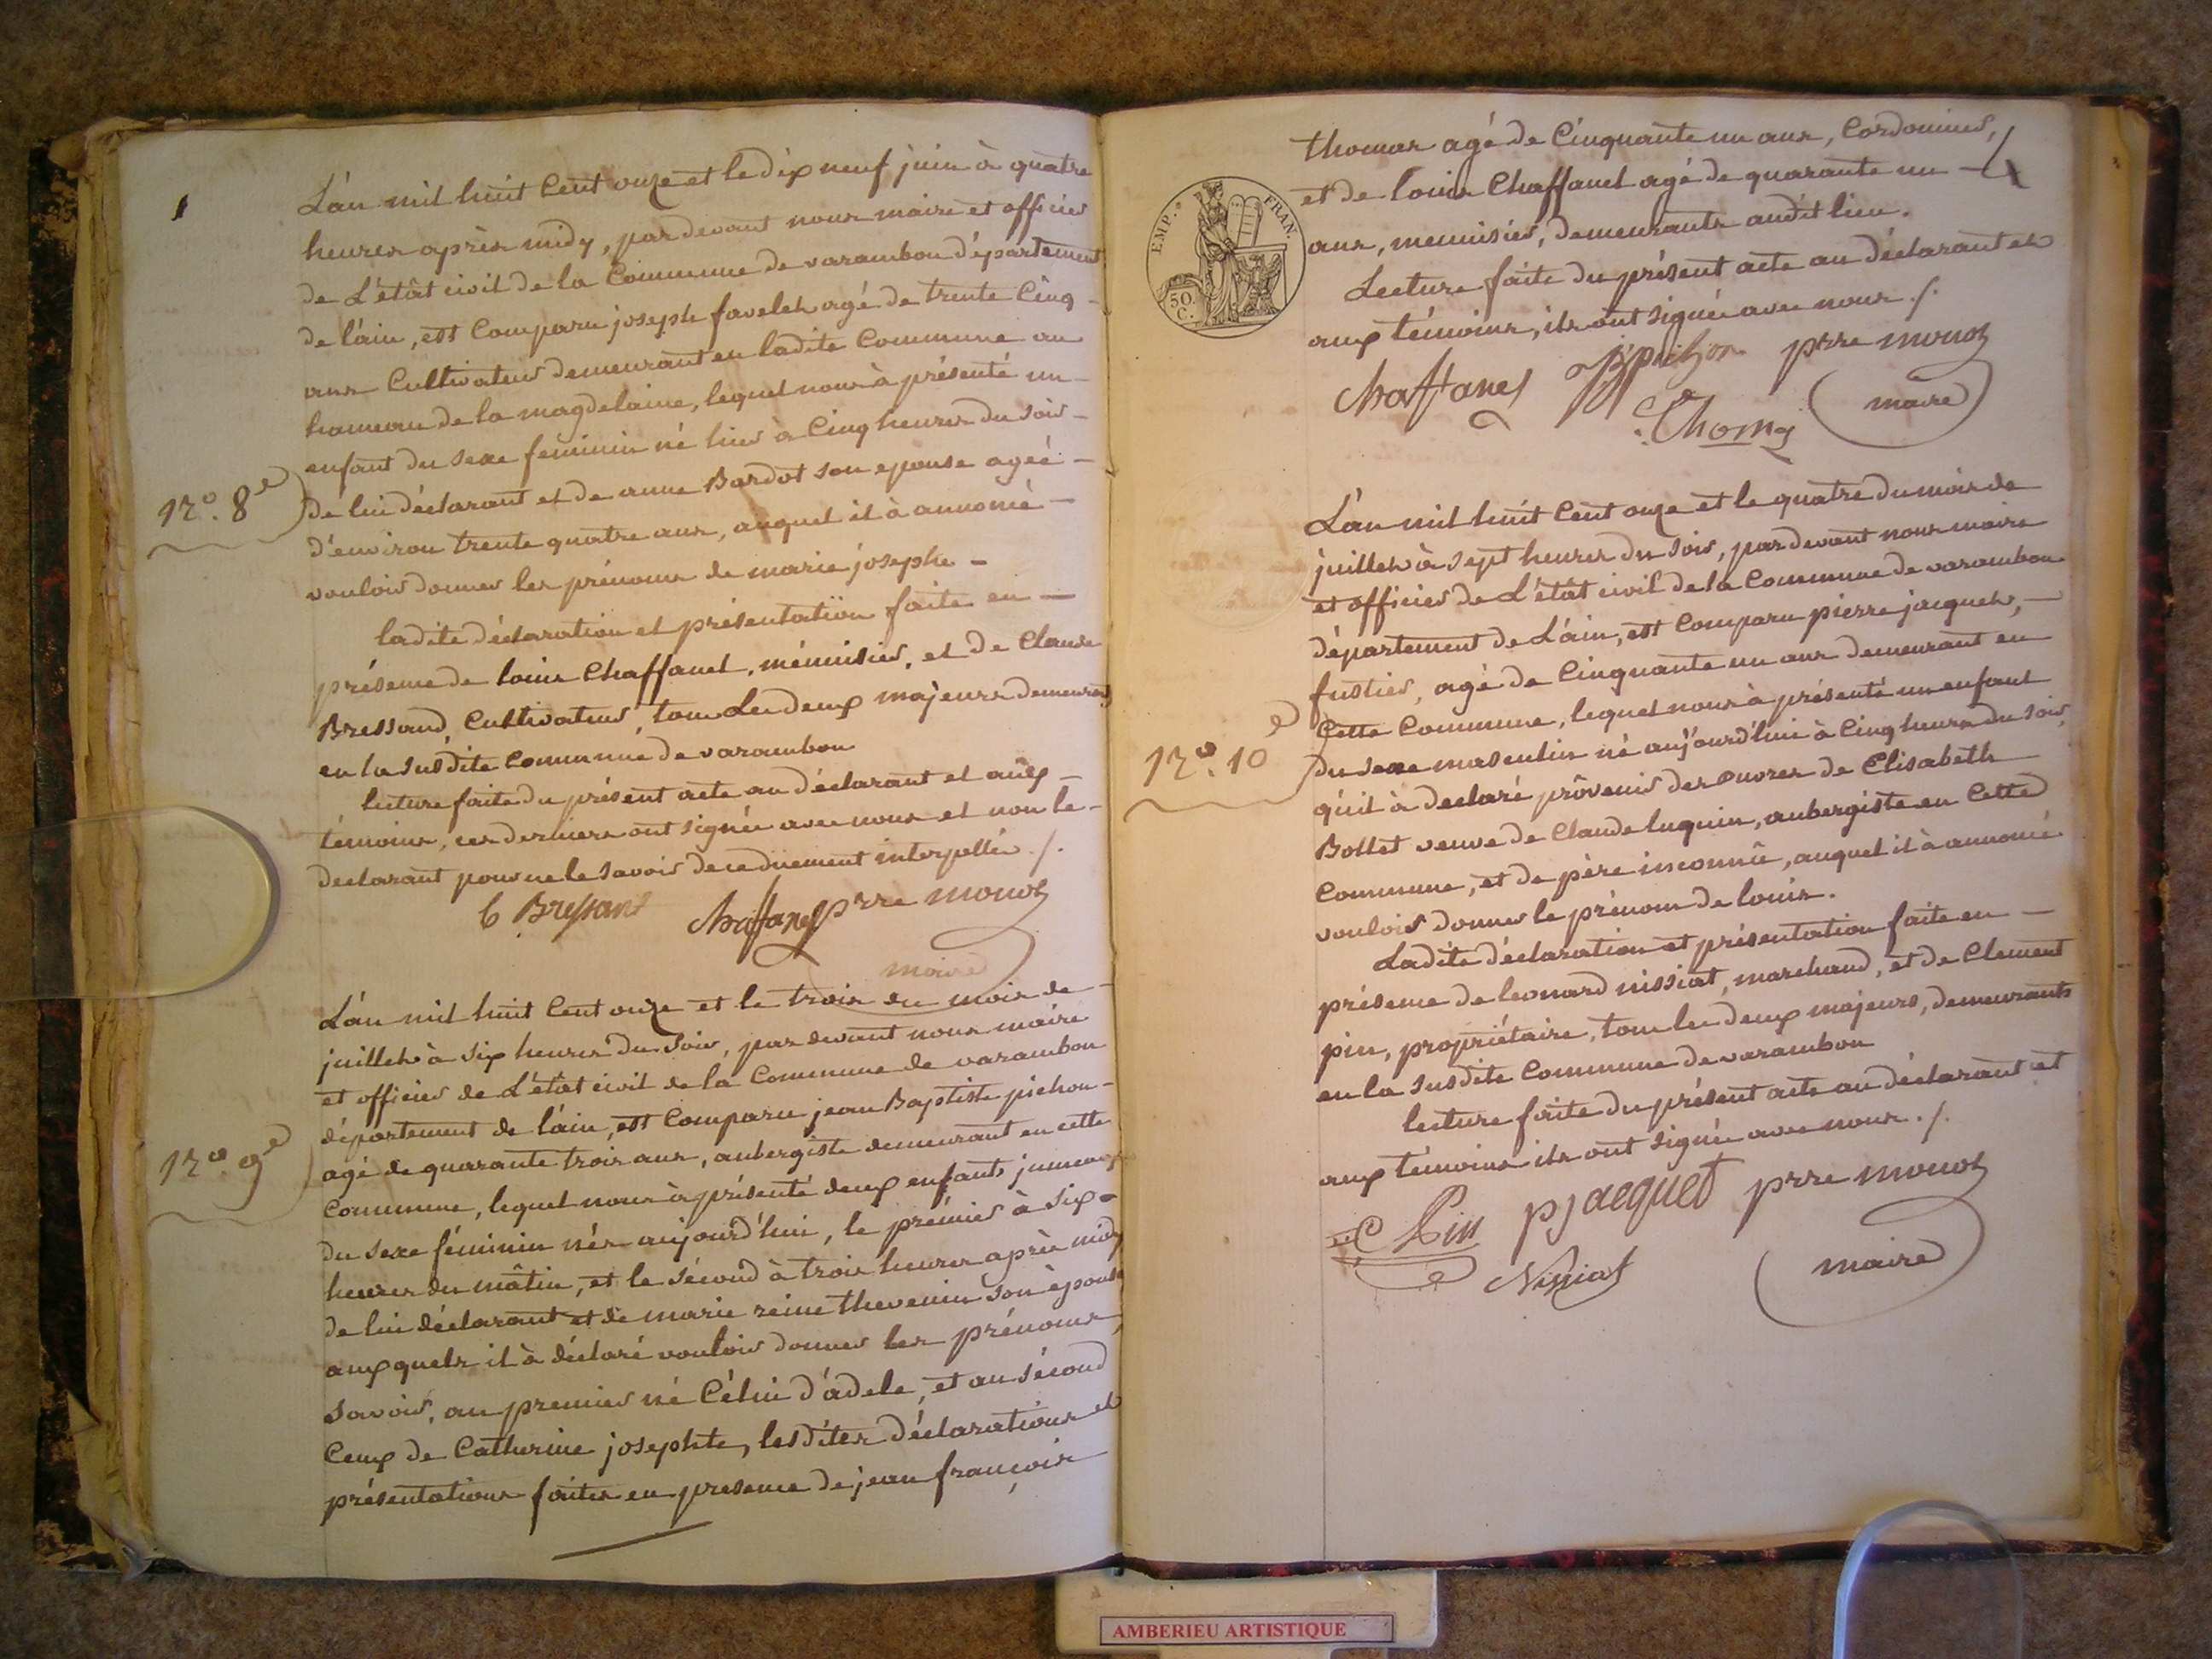 L'an mil huit Cent onze et le dix neuf juin à quatre
heures après midy, pardevant nous maire et officier
de L'êtât civil de la Commune de varambon département
de l'ain, est Comparu joseph favelet agé de trente Cinq
ans Cultivateur demeurant en ladite Commune au
hameau de la magdelaine, lequel nous à présenté un
enfant du sexe féminin né hier à Cinq heures du soir
N.º 8e
de lui déclarant et de anne Bardot son epouse agéé
d'environ trente quatre ans, auquel il à annoncé
vouloir donner les prénoms de marie josephe
ladite déclaration et présentation faite en
présence de louis Chaffanel, ménuisier, et de Claude
Bressand, Cultivateur, tous Les deux majeurs demeurant
en la susdite Commune de varambon
lecture faite du présent acte au déclarant et aux
témoins, ces derniers ont signée avec nous et non le
declarant pour ne le savoir de ce duement interpellée ./.
C Bressand Chaffanel pierre monoz
maire
L'an mil huit Cent onze et le trois du mois de
juillet à six heures du Soir, par devant nous maire
et officier de L'êtât civil de la Commune de varambon
département de l'ain, est Comparu jean Baptiste pichon
N.º 9e
agé de quarante trois ans, aubergiste demeurant en cette
Commune, lequel nous à présenté deux enfants jumeaux
du sexe féminin nés aujourd'hui, le prémier à six
heures du mâtin, et le sécond à trois heures après midy
de lui déclarant et de marie reine thevenin son épouse
auxquels il à déclaré vouloir donner les prénoms,
savoir, au premier né Célui d'adele, et au sécond
Ceux de Catherine josephte, lesdites déclarations et
présentations faites en presence de jean françois
4
EMP. FRAN.
50. C.
thomas agé de Cinquante un ans, Cordonnier,
et de louis Chaffanel agé de quarante un
ans, menuisier, demeurants audit lieu.
Lecture faite du présent acte au déclarant et
aux témoins, ils ont signée avec nous ./.
Chaffanel JB pichon pierre monoz
Thomas maire
L'an mil huit Cent onze et le quatre du mois de
juillet à sept heures du soir, par devant nous maire
et officier de L'êtât civil de la Commune de varambon
département de L'ain, est Comparu pierre jacquet,
fustier, agé de Cinquante un ans demeurant en
Cette Commune, lequel nous à présenté un enfant
N.º 10e
du sexe masculin né aujourd'hui à Cinq heures du soir,
qu'il à declaré prôvenir des œuvres de Elisabeth
Bollet veuve de Claude luquin, aubergiste en Cette
Commune, et de père inconnûe, auquel il à annoncé
vouloir donner le prénom de louis.
Ladite déclaration et présentation faite en
présence de leonard nissiat, marchand, et de Clement
pin, propriétaire, tous les deux majeurs, demeurants
en la susdite Commune de varambon
lecture faite du présent acte au déclarant et
aux témoins ils ont signée avec nous ./.
C Pin pjacquet pierre monoz
Nissiat maire
AMBERIEU ARTISTIQUE